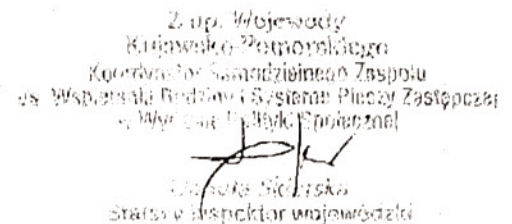 Z up. Wojewody
Kujawsko-Pomorskiego
Koordynator Samodzielnego Zespołu
ds. Wspierania Rodziny i Systemu Pieczy Zastępczej
w Wydziale Polityki Społecznej
Danuta
Starszy inspektor wojewódzki